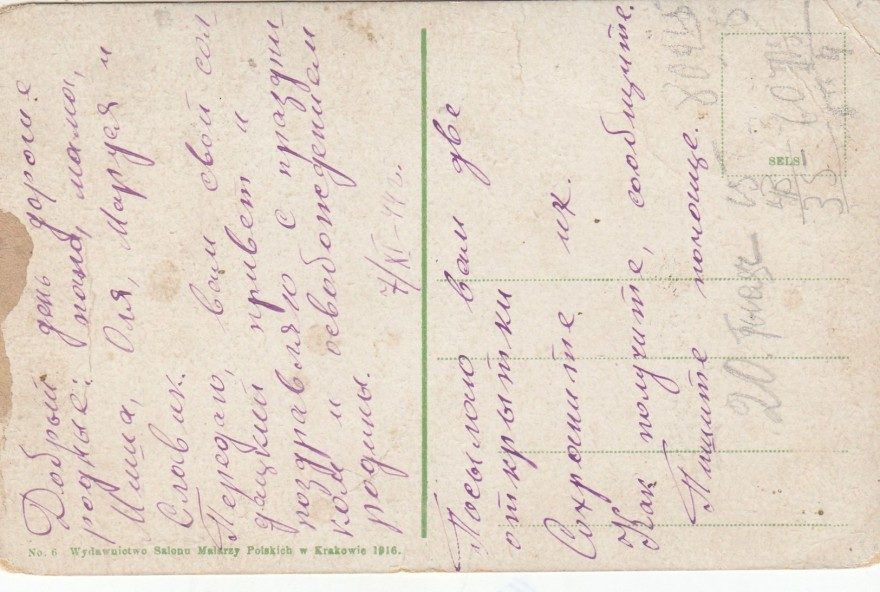 Добрый день дорогие
родные: папа, мама,
Миша, Оля, Маруся и
Славик.
Передаю, вам свой сол
дацкий привет и
поздравляю с праздни
ком и освобождением
родины.
7/XI-44г.
Посылаю вам две
открытки
Сохраните их.
Как получите, сообщите.
Пишите почаще.
No. 6 Wydawnictwo Salonu Malarzy Polskich w Krakowie 1916.
SELS